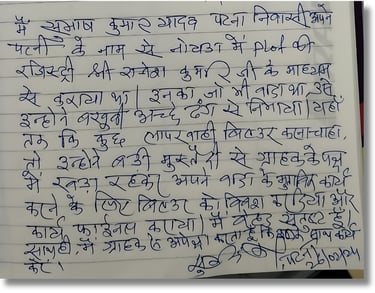 मैं सुभाष कुमार यादव पटना निवासी अपने
पत्नी के नाम से नोयडा में Plot की
रजिस्ट्री श्री राकेश कुमार जी के माध्यम
से कराया था। इनका जो भी वादा था, उसे
इन्होंने बखूबी अच्छे ढंग से निभाया। यहाँ
तक कि कुछ लापरवाही बिल्डर करना चाहा,
तो उन्होंने बड़ी मुस्तैदी से ग्राहक के पक्ष
में खड़ा रहकर अपने वादा के मुताबिक कार्य
करने के लिए बिल्डर को विवश कर दिया और
कार्य फाईनल कराया। मैं बेहद संतुष्ट हूँ।
साथ ही, मैं ग्राहक से अपेक्षा करता हूँ कि इनके साथ कार्य
करें।